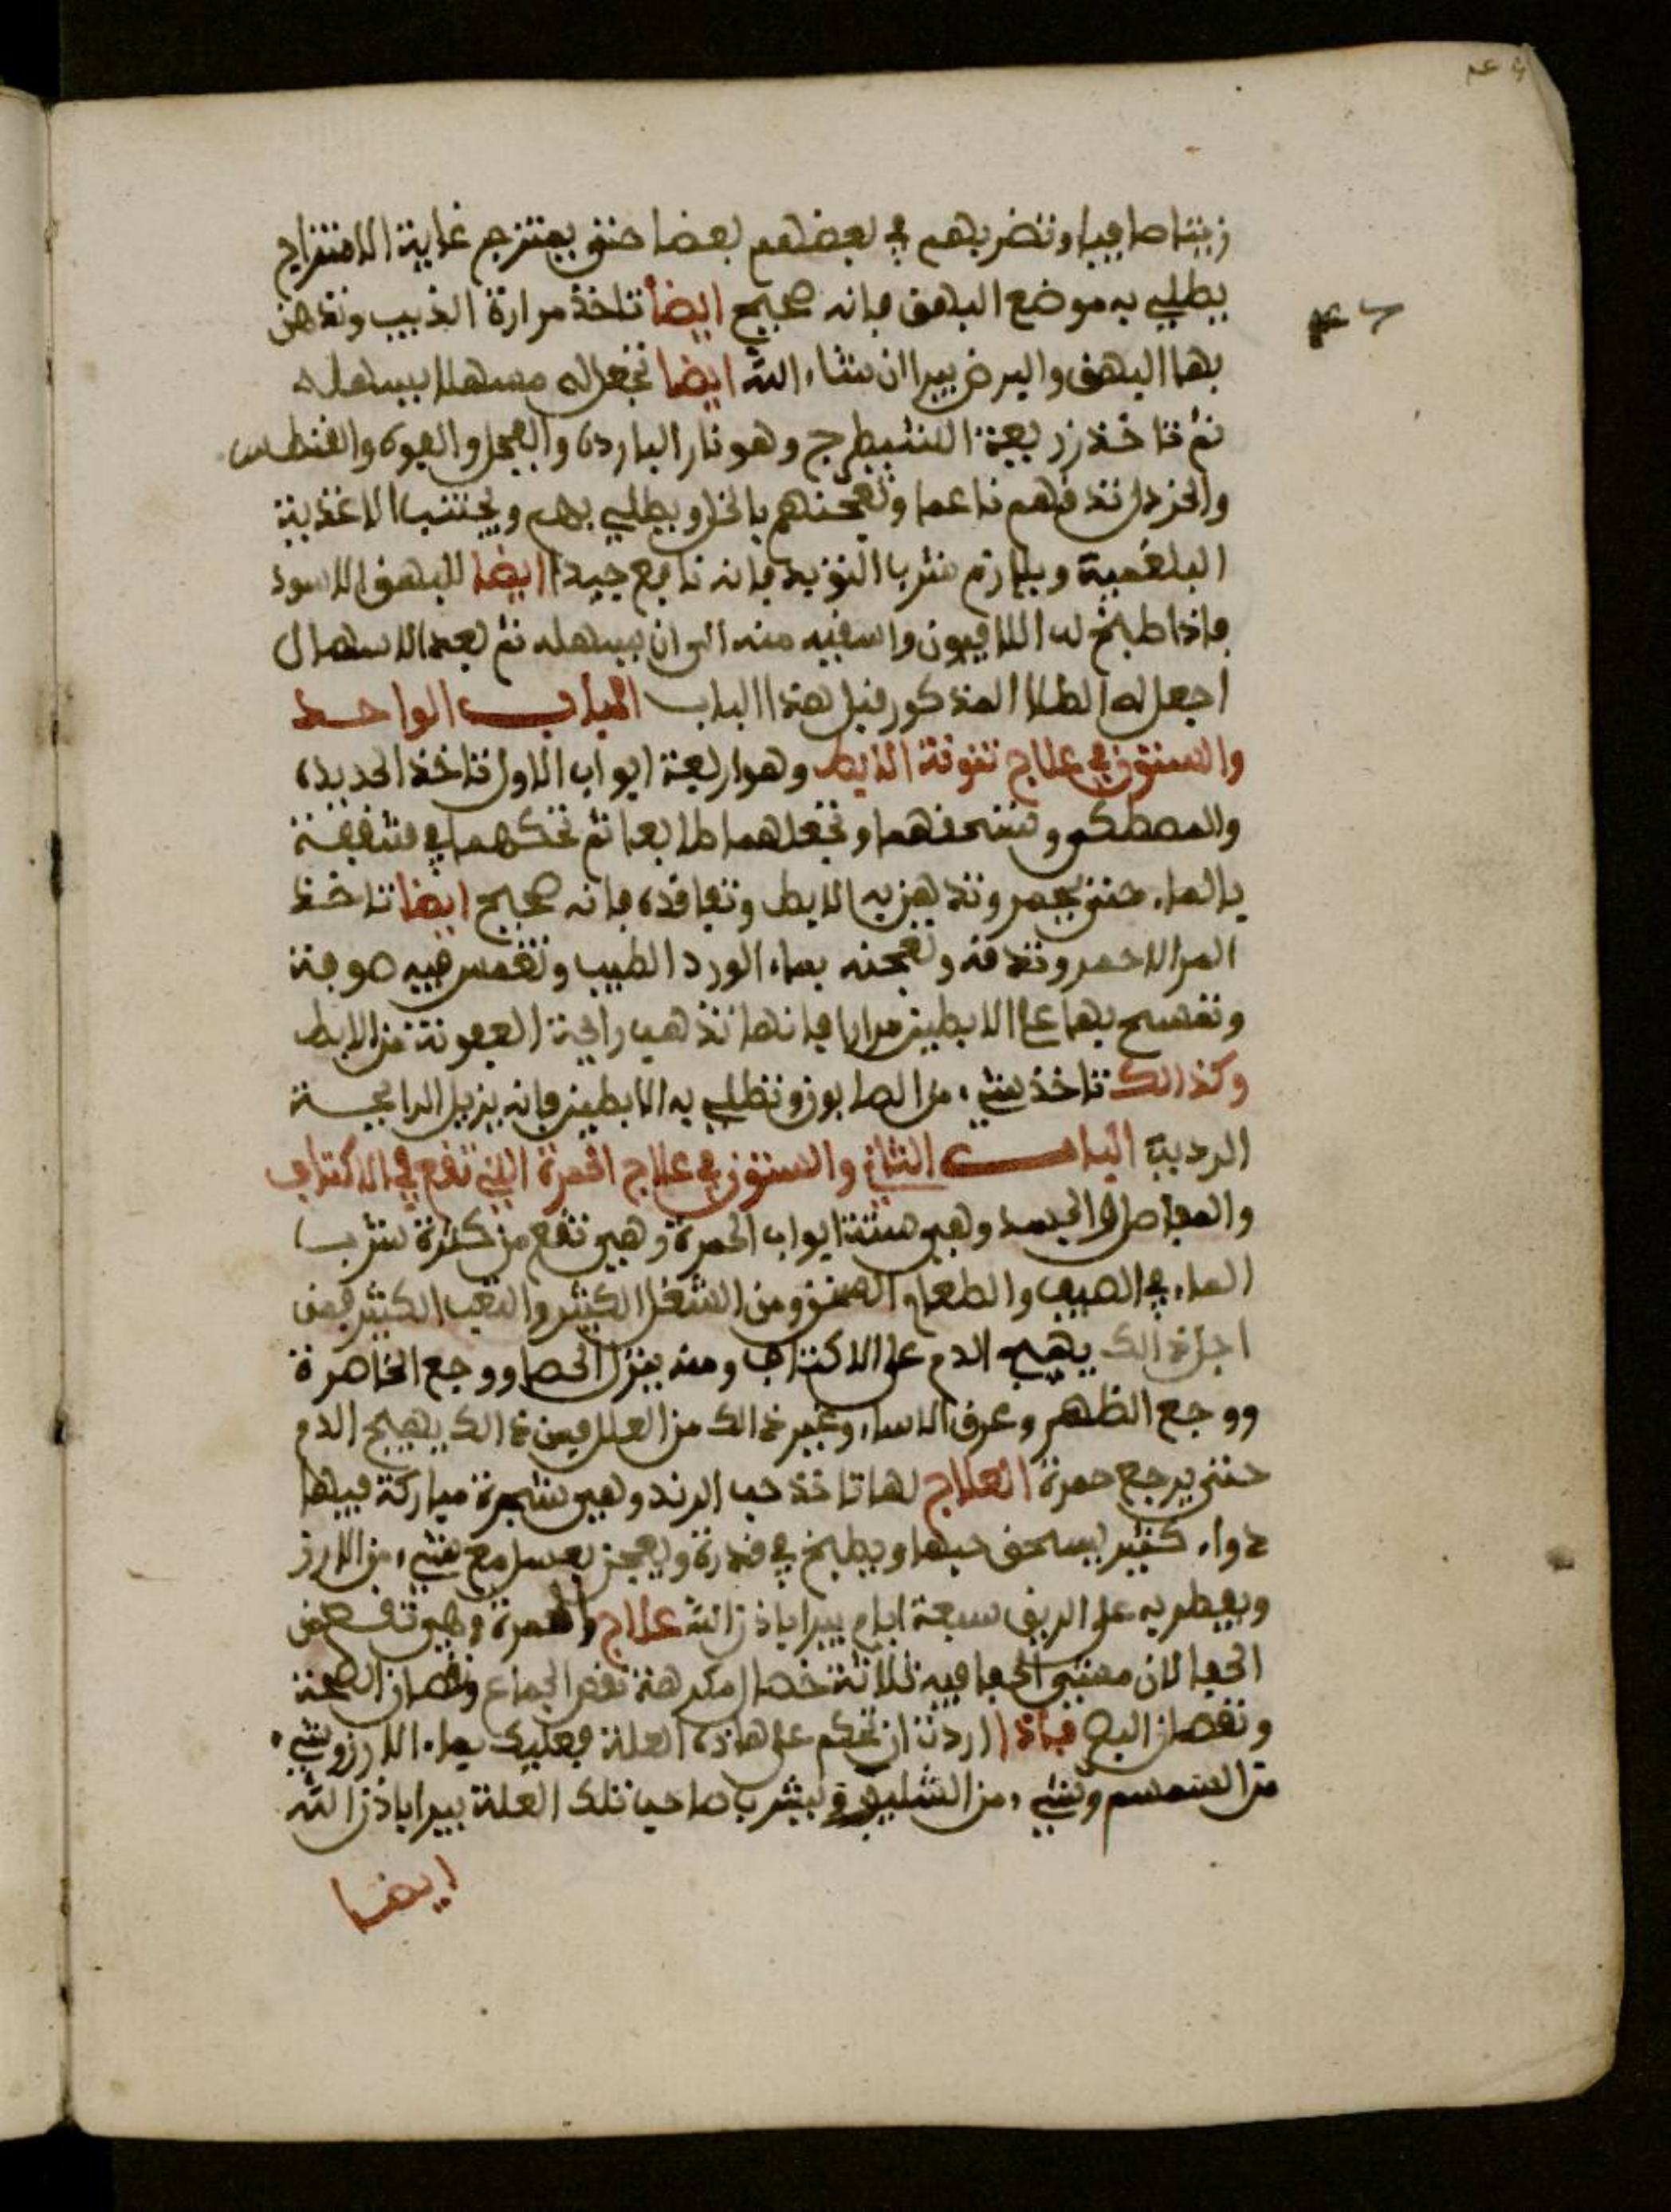 زيتا صافيا وتضربهم في بعضهم بعضا حتى يمتزج غاية الامتزاج
يطلي به موضع البهق فانه صحيح ايضا تاخذ مرارة الذيب وتدهن
بها البهق والبرص يبرا ان شاء الله ايضا تجعل له مسهلا يسهله
ثم تاخذ زريعة الشيطرج وهو نار الباردة والفجل والفوة والقنطس
والخردل تدقهم ناعما وتعجنهم بالخل ويطلي بهم ويجتنب الاغذية
البلغمية ويلازم شرب التوبد فانه نافع جيد ايضا للبهق الاسود
فاذا طبخ له الافيون واسقيه منه الى ان يسهله ثم بعد الاسهال
اجعل له الطلا المذكور قبل هذا الباب الباب الواحد
والستون في علاج نتونة الابط وهو اربعة ابواب الاول تاخذ الحديدة
والمصطكى وتسحقهما وتجعلهما طابعا ثم تحكهما في شقفة
بالماء حتى يحمر وتدهن به الابط وتعاقده فانه صحيح ايضا تاخذ
المر الاحمر وتدقه وتعجنه بماء الورد الطيب وتغمس فيه صوفة
وتمسح بها على الابطين مرارا فانها تذهب رائحة العفونة من الابط
وكذالك تاخذ شيء من الصابون وتطلي به الابطين فانه يزيل الرائحة
الردية الباب الثاني والستون في علاج الحمرة التي تقع في الاكتاف
والمفاصل والجسد وهي ستة ابواب الحمرة وهي تقع من كثرة شرب
الماء في الصيف والطعام السخن ومن الشغل الكثير والتعب الكثير فمن
اجل ذالك يهيج الدم على الاكتاف ومنه ينزل الحصا ووجع الخاصرة
ووجع الظهر وعرق الاسا وغير ذالك من العلل فمن ذالك يهيج الدم
حتى يرجع حمرة العلاج لها تاخذ حب الرند وهي شجرة مباركة فيها
دواء كثير يسحق حبها ويطبخ في قدرة ويعجن بعسل مع شيء من الارز
ويفطر به على الريق سبعة ايام يبرا باذن الله علاج الحمرة وهي تقع من
الحفا لان معنى الحفا فيه ثلاثة خصال مكرهة نقص الجماع ونقصان الصحة
ونقصان البصر فاذا اردت ان تحكم على هاذه العلة فعليك بماء الارز وشيء
من السمسم وشيء من الشليوق ليشرب صاحب تلك العلة يبرا باذن الله
ايضا